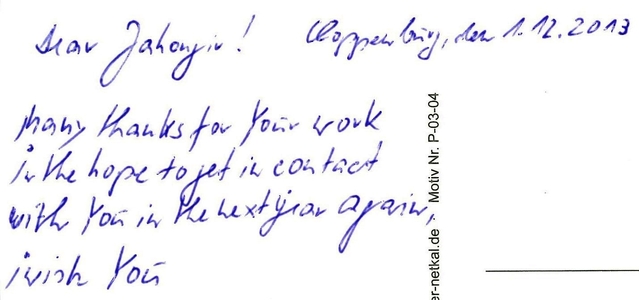 Dear Jahongir!
Cloppenburg, den 1.12.2013
Many thanks for Your work
in the hope to get in contact
with You in the next year again,
i wish You
er-netkal.de Motiv Nr. P-03-04